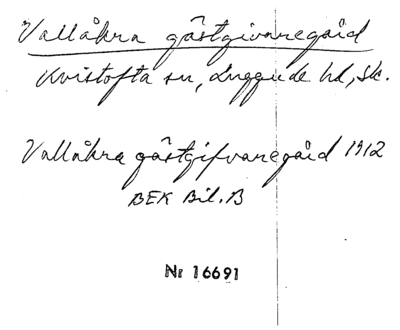 Vallåkra gästgivaregård
Kvistofta sn, Luggude hd, Sk.
Vallåkra gästgifvaregård 1912
BEK Bil. B
Nr 16691